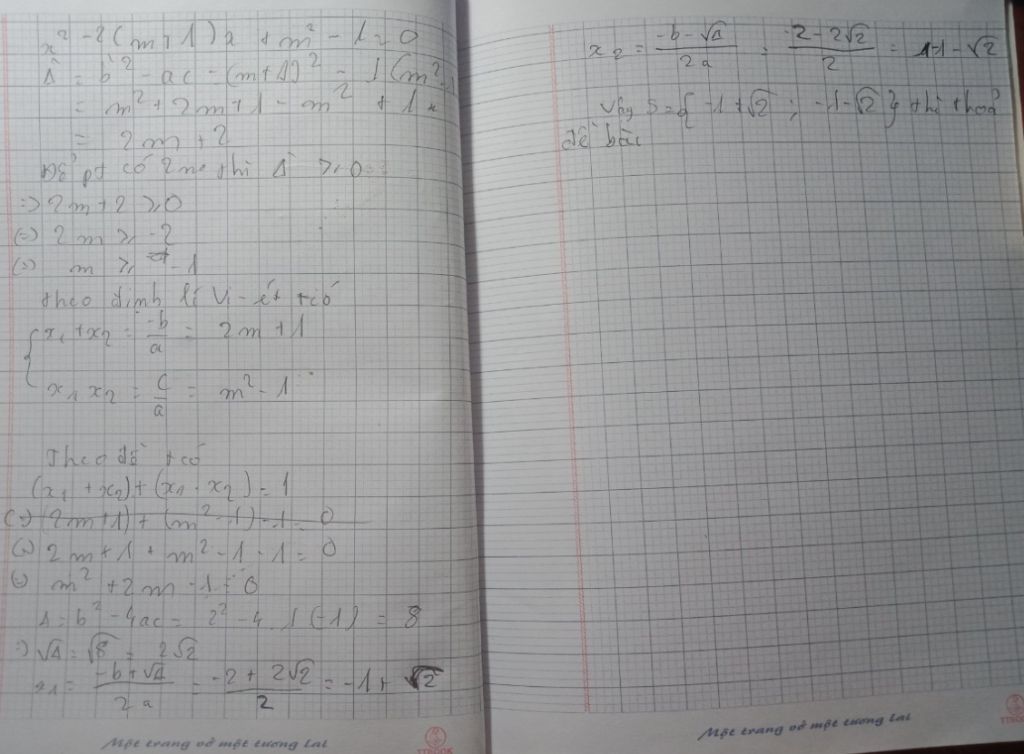 x² - 2(m+1)x + m² - 1 = 0
Δ' = b'² - ac = (m+1)² - 1(m²-1)
= m² + 2m + 1 - m² + 1
= 2m + 2
Để pt có 2 no thì Δ' ≥ 0
=> 2m + 2 ≥ 0
(=) 2m ≥ -2
(=) m ≥ -1
theo định lí Vi-ét t có
x₁ + x₂ = -b/a = 2m + 1
x₁ x₂ = c/a = m² - 1
Theo đề t có
(x₁ + x₂) + (x₁ . x₂) = 1
(=) (2m+1) + (m² - 1) - 1 = 0
(=) 2m + 1 + m² - 1 - 1 = 0
(=) m² + 2m - 1 = 0
Δ = b² - 4ac = 2² - 4 . 1 (-1) = 8
=) √Δ = √8 = 2√2
x₁ = (-b + √Δ)/2a = (-2 + 2√2)/2 = -1 + √2
Một trang vở một tương lai
x₂ = (-b - √Δ)/2a = (-2 - 2√2)/2 = -1 - √2
Vậy S = { -1 + √2 ; -1 - √2 } thì thoả
đề bài
Một trang vở một tương lai